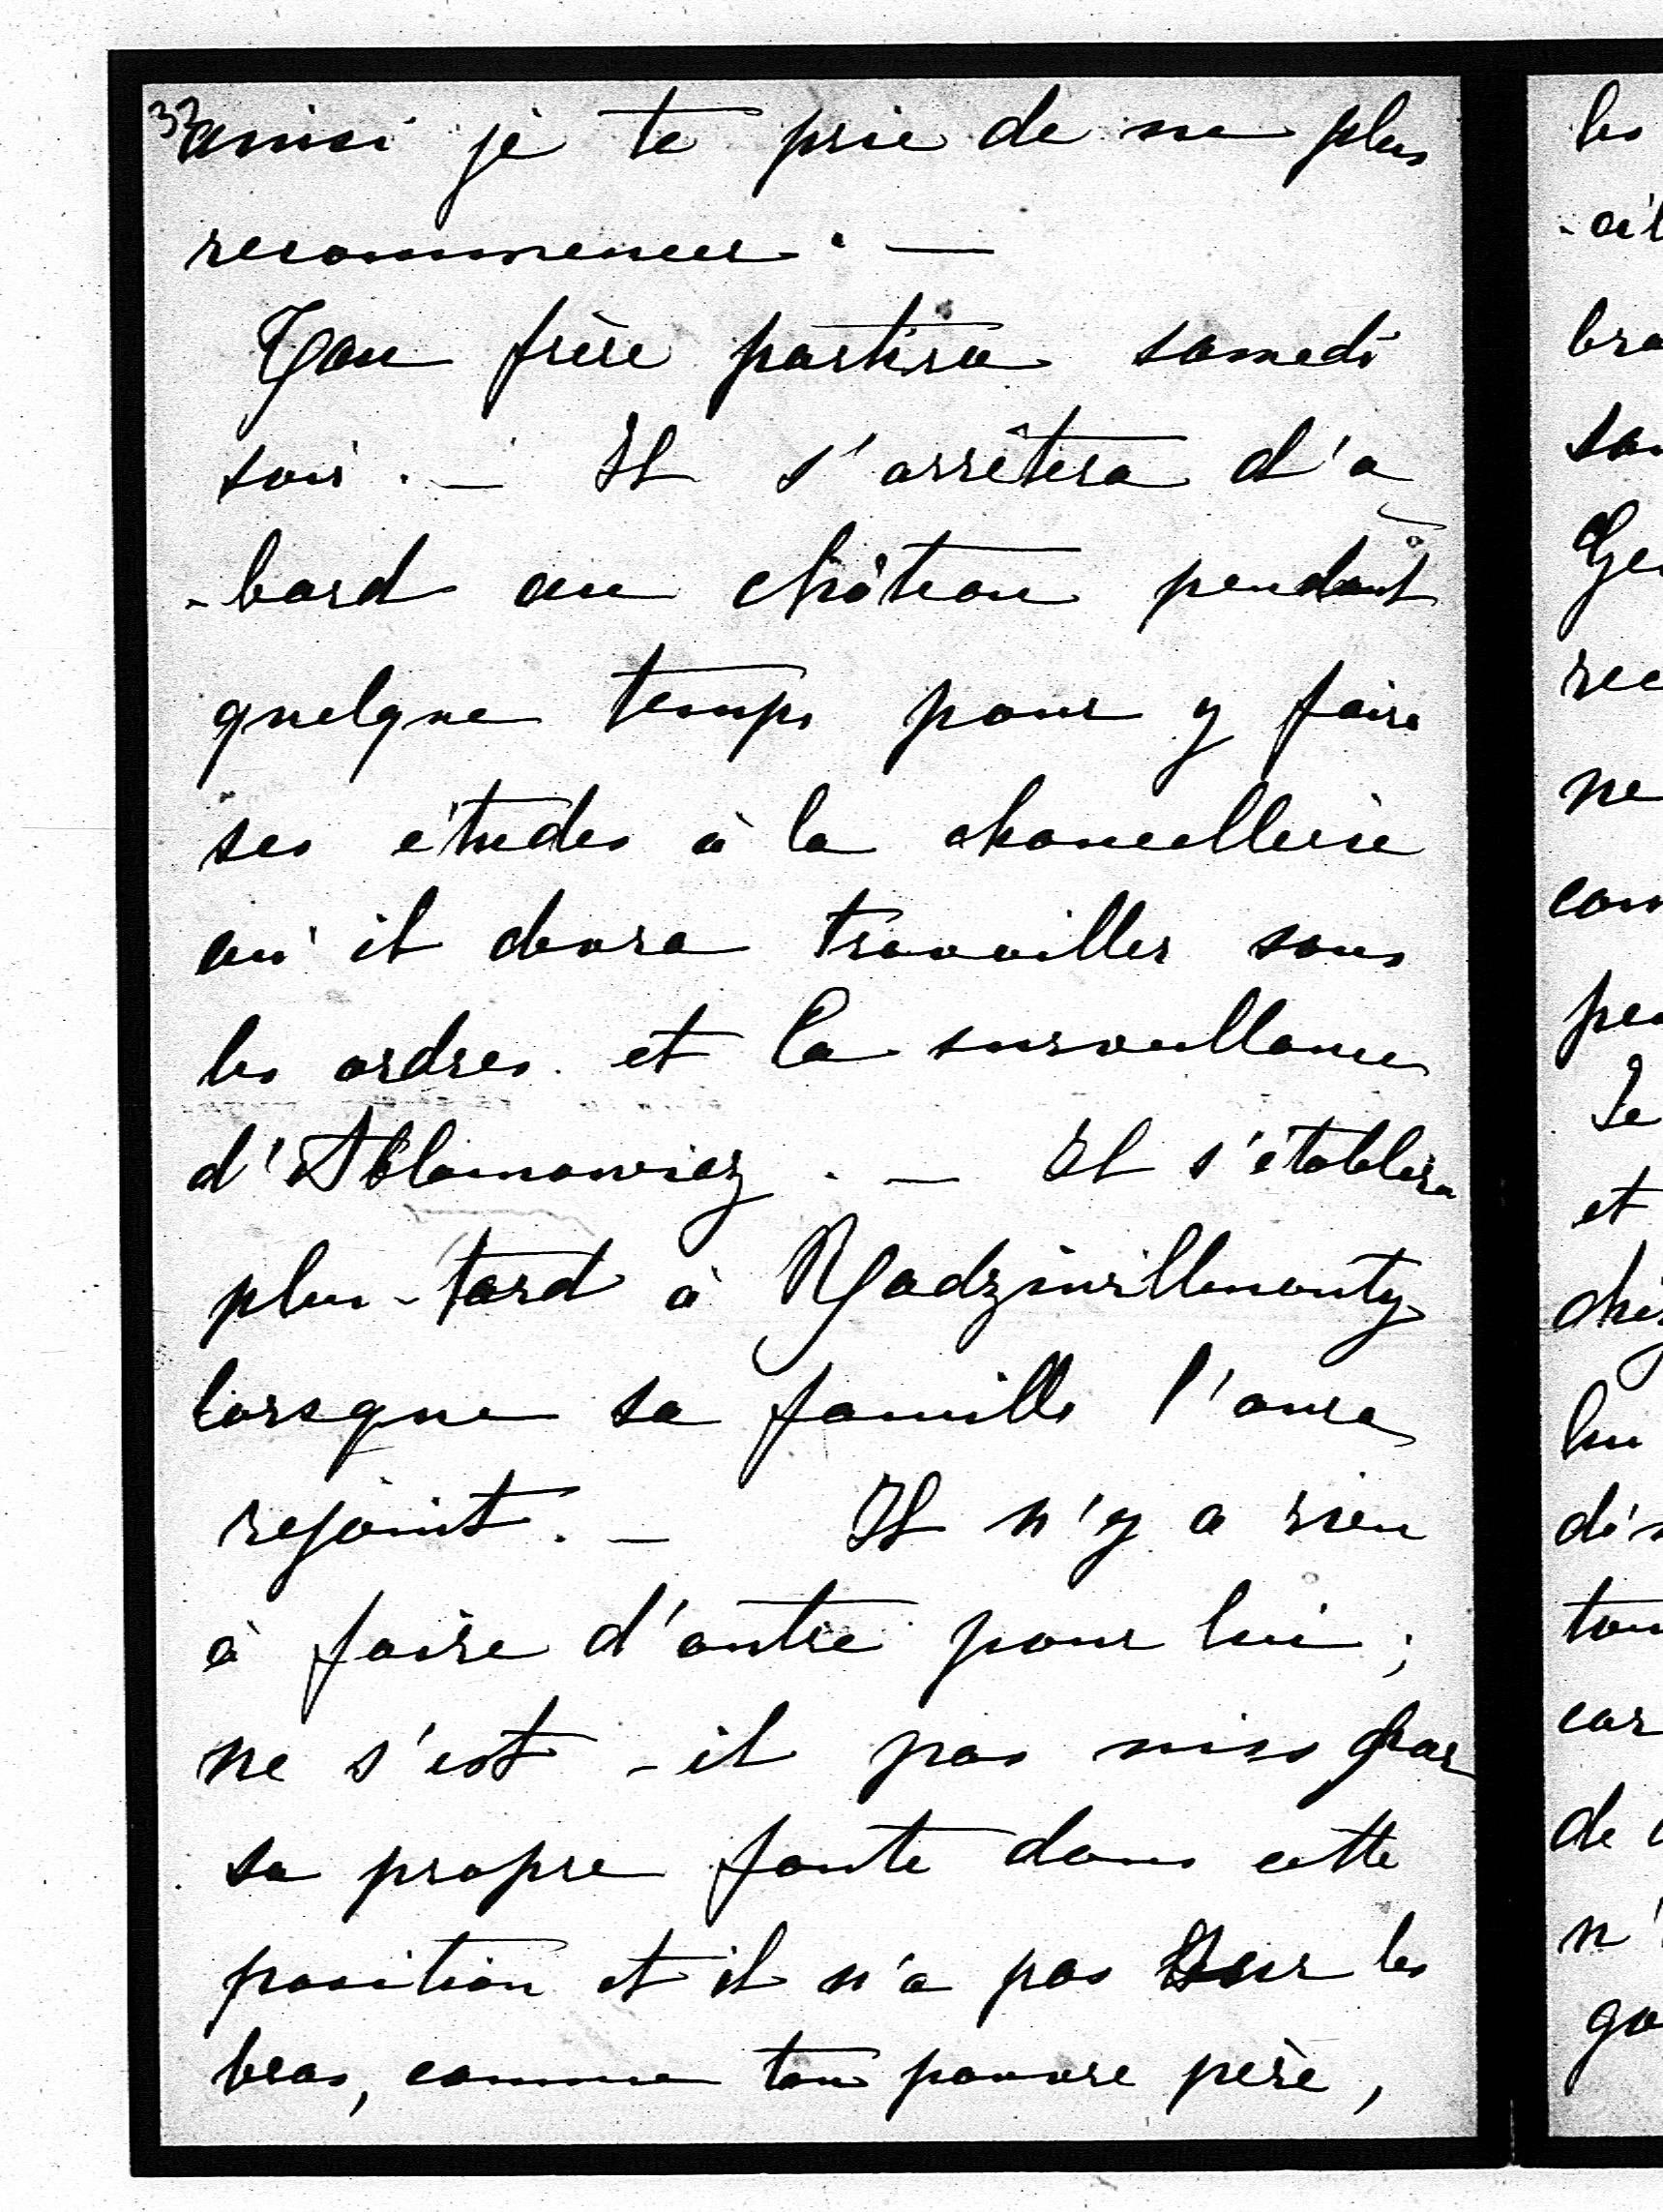 37
ainsi je te prie de ne plus
recommencer. —
Ton frère partira samedi
soir. — Il s'arrêtera d'a
-bord au château pendant
quelque temps pour y faire
ses études à la chancellerie
où il devra travailler sous
les ordres et la surveillance
d'Ablamowicz. — Il s'établira
plus-tard à Radziwillmonty
lorsque sa famille l'aura
rejoint. — Il n'y a rien
à faire d'autre pour lui ;
ne s'est-il pas mis par
sa propre faute dans cette
position et il n'a pas sur les
bras, comme ton pauvre père,
les
bra
ne
Je
et
lui
car
de
n'